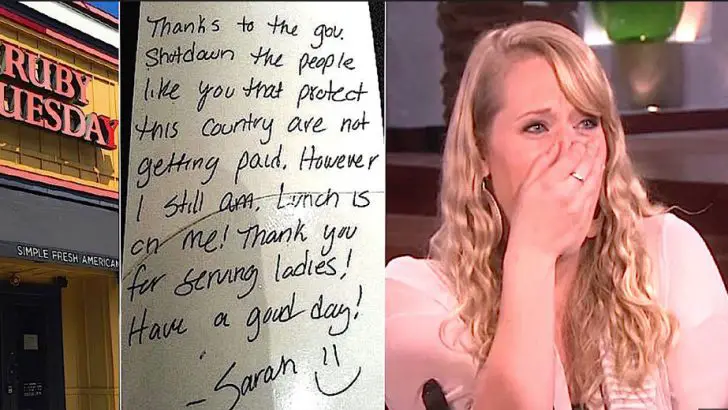 RUBY
UESDAY
SIMPLE FRESH AMERICAN
Thanks to the gov.
Shotdown the people
like you that protect
this country are not
getting paid. However
I still am. Lunch is
on me! Thank you
for serving ladies!
Have a good day!
- Sarah